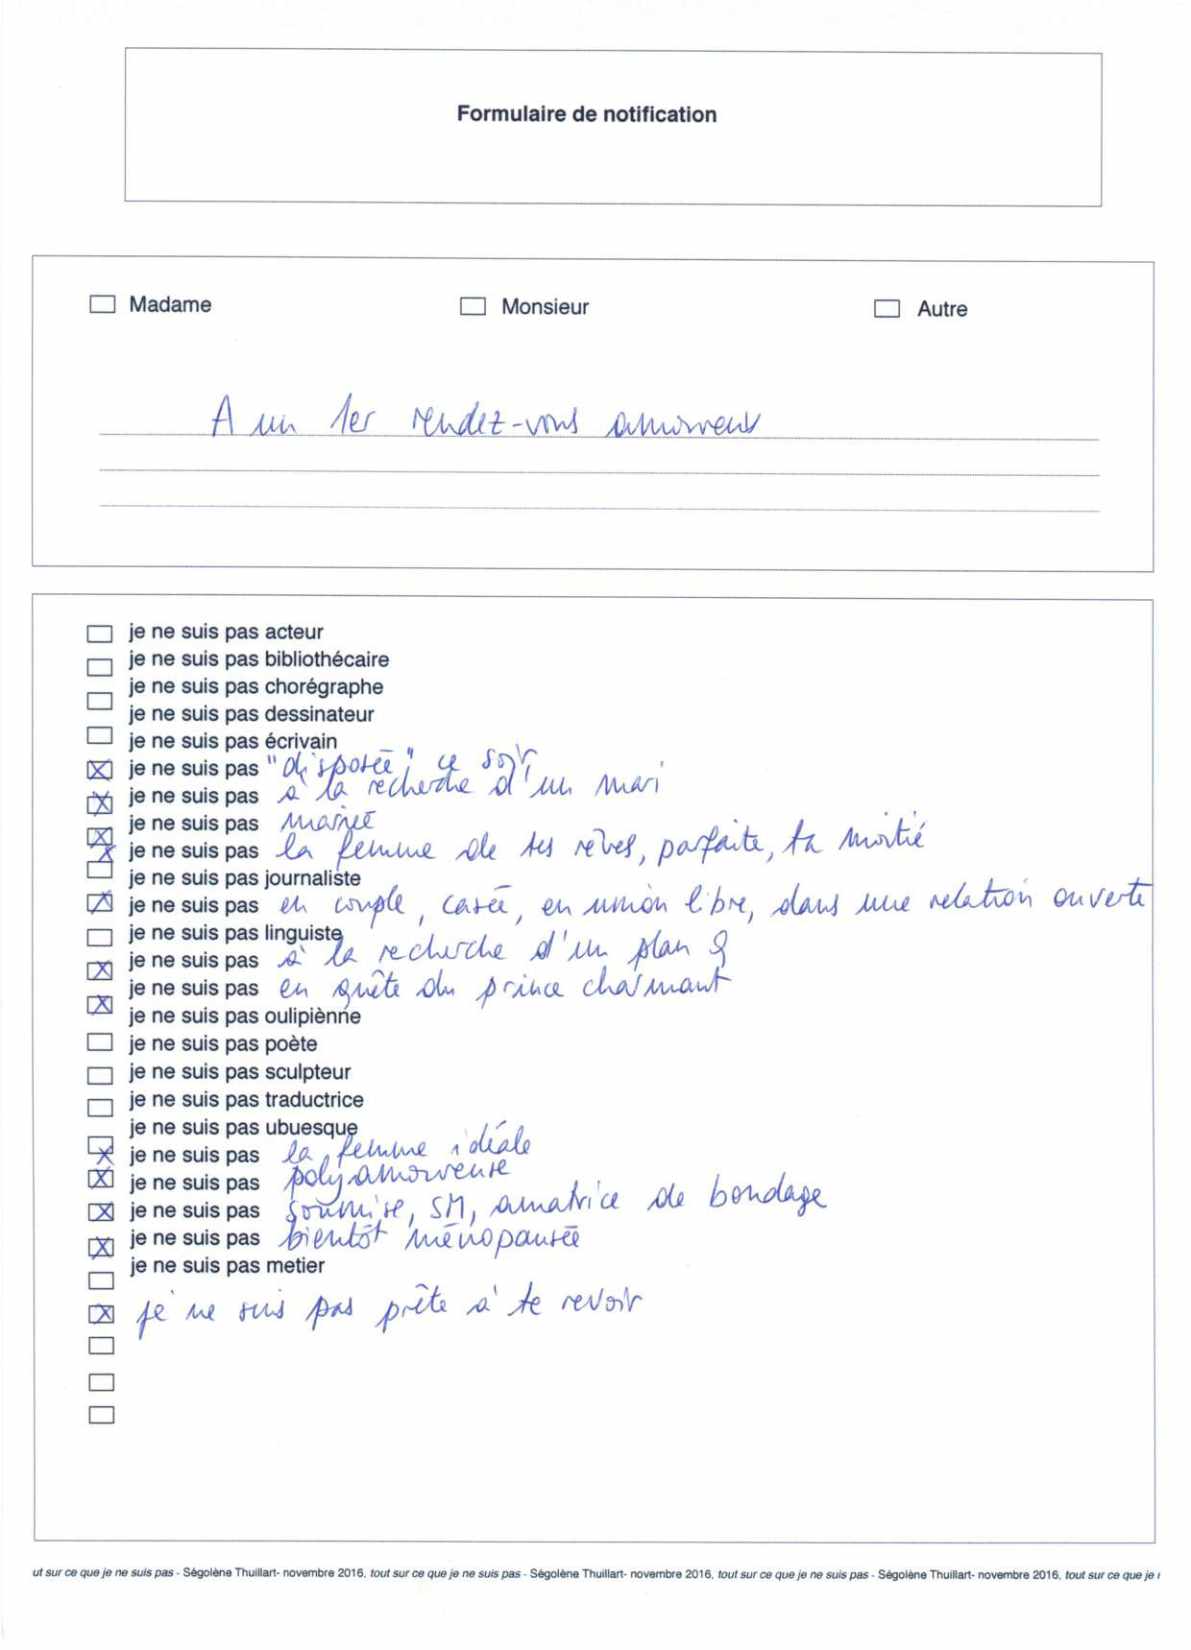 Formulaire de notification
Madame Monsieur Autre
A un 1er rendez-vous amoureux
je ne suis pas acteur
je ne suis pas bibliothécaire
je ne suis pas chorégraphe
je ne suis pas dessinateur
je ne suis pas écrivain
je ne suis pas "disposée" ce soir
je ne suis pas à la recherche d'un mari
je ne suis pas mariée
je ne suis pas la femme de tes rêves, parfaite, ta moitié
je ne suis pas journaliste
je ne suis pas en couple, casée, en union libre, dans une relation ouverte
je ne suis pas linguiste
je ne suis pas à la recherche d'un plan Q
je ne suis pas en quête du prince charmant
je ne suis pas oulipiènne
je ne suis pas poète
je ne suis pas sculpteur
je ne suis pas traductrice
je ne suis pas ubuesque
je ne suis pas la femme idéale
je ne suis pas polyamoureuse
je ne suis pas soumise, SM, amatrice de bondage
je ne suis pas bientôt ménopausée
je ne suis pas metier
je ne suis pas prête à te revoir
ut sur ce que je ne suis pas - Ségolène Thuillart- novembre 2016, tout sur ce que je ne suis pas - Ségolène Thuillart- novembre 2016, tout sur ce que je ne suis pas - Ségolène Thuillart- novembre 2016, tout sur ce que je